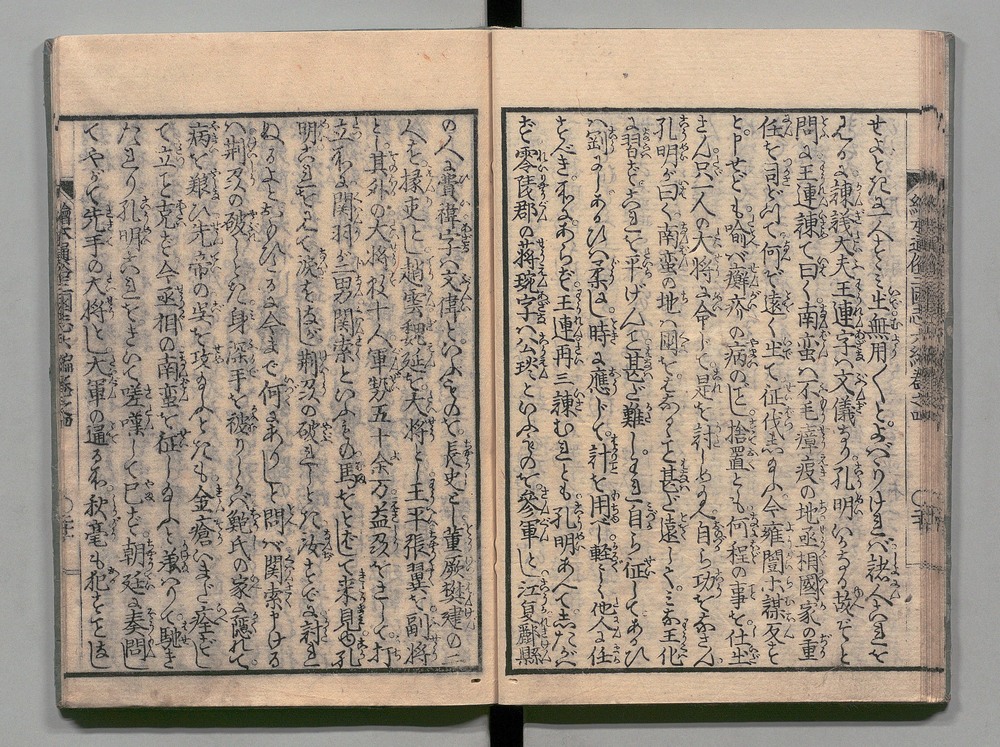 せよとたゞ一人すゝみ出無用〱とよばりけれバ諸人これを
みるに諫議大夫王連字ハ文儀なり孔明いかなる故ぞと
問王連諫て曰く南蛮ハ不毛瘴疫の地丞相國家の重
任を司どりて何ぞ遠く出て征伐したまふや今雍闓ホ謀反を
ども喩バ癬疥の病のごとし捨置とも何程の事を仕出
さん只一人の大将に命じて是を討しめバ自ら功をなさん
孔明が曰く南蛮の地ハ國をはなれて甚だ遠しく王化
に習ざれバこれを平げんと甚だ難し自ら征してあるひ
ハ剛にしあるひハ柔にし時に應じて計を用べし軽〱しく他人に任
すべきにあらずと王連再三諫むれども孔明あへてしたがハ
ず零陵郡の蒋琬字ハ公琰といふものを參軍とし江夏鄳縣
の人費禕字ハ文偉といふものを長史とし董厥樊建の二
人を掾吏とし趙雲魏延を大将とし王平張翼を副将
とし其外の大将数十人軍勢五十余万益州をさして打
立ちに関羽が三男関索といふもの馬をとばして来り見ゆ孔
明これをみて涙をながし荊州の破れしとき汝すでに討れ
ぬるよとおもひしに今まで何くにありしと問バ関索申ける
ハ荊州の破れしとき身深手を被りしかバ鮑氏の家に隠れて
病を養ひ先帝の呉を攻たまふといへども金瘡いまだ痊ず
して立ことを克ず今丞相の南蛮を征したまふと承ハりて馳き
たれり孔明これをきいて嗟嘆して已ず朝廷に奏問し
てやがて先手の大将とし大軍の通るに秋毫も犯すことなし
繪本通俗三國志六編巻之四